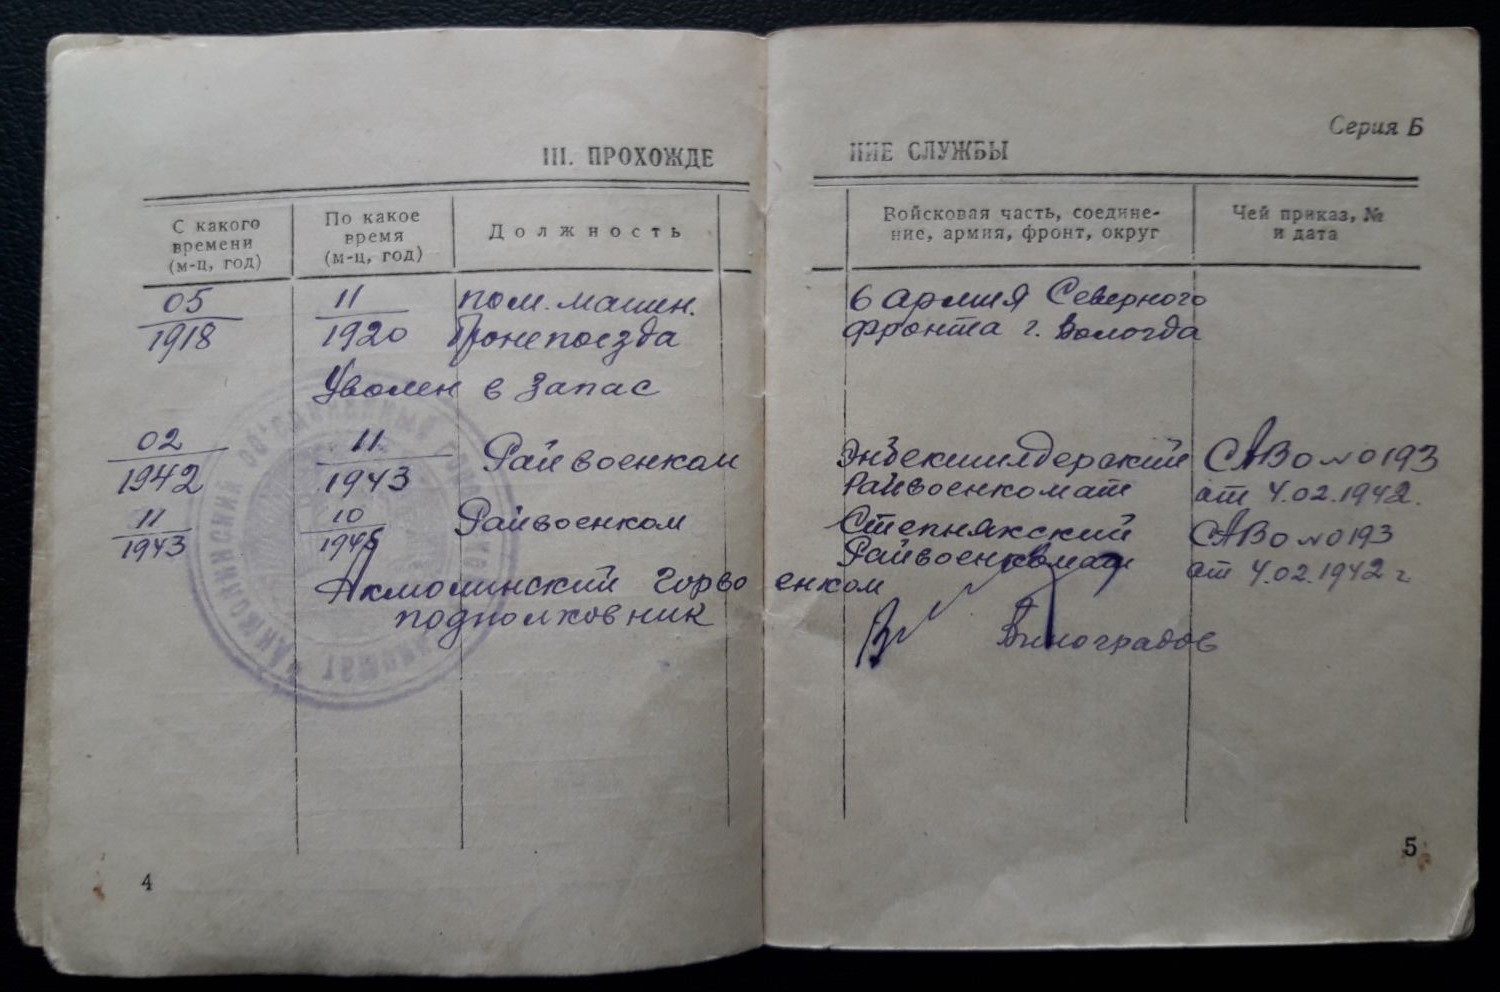 Серия Б
III. ПРОХОЖДЕ
НИЕ СЛУЖБЫ
С какого
времени
(м-ц, год)
По какое
время
(м-ц, год)
Должность
Войсковая часть, соедине-
ние, армия, фронт, округ
Чей приказ, №
и дата
05
1918
11
1920
пом. машин.
Бронепоезда
6 армия Северного
фронта г. Вологда
Уволен в запас
02
1942
11
1943
Райвоенком
Энбекшилдерский
Райвоенкомат
САВО № 0193
от 4.02.1942.
11
1943
10
Райвоенком
Степнякский
Райвоенкомат
САВО № 0193
от 4.02.1942 г
Акмолинский горвоенком
подполковник
Виноградов
4
5